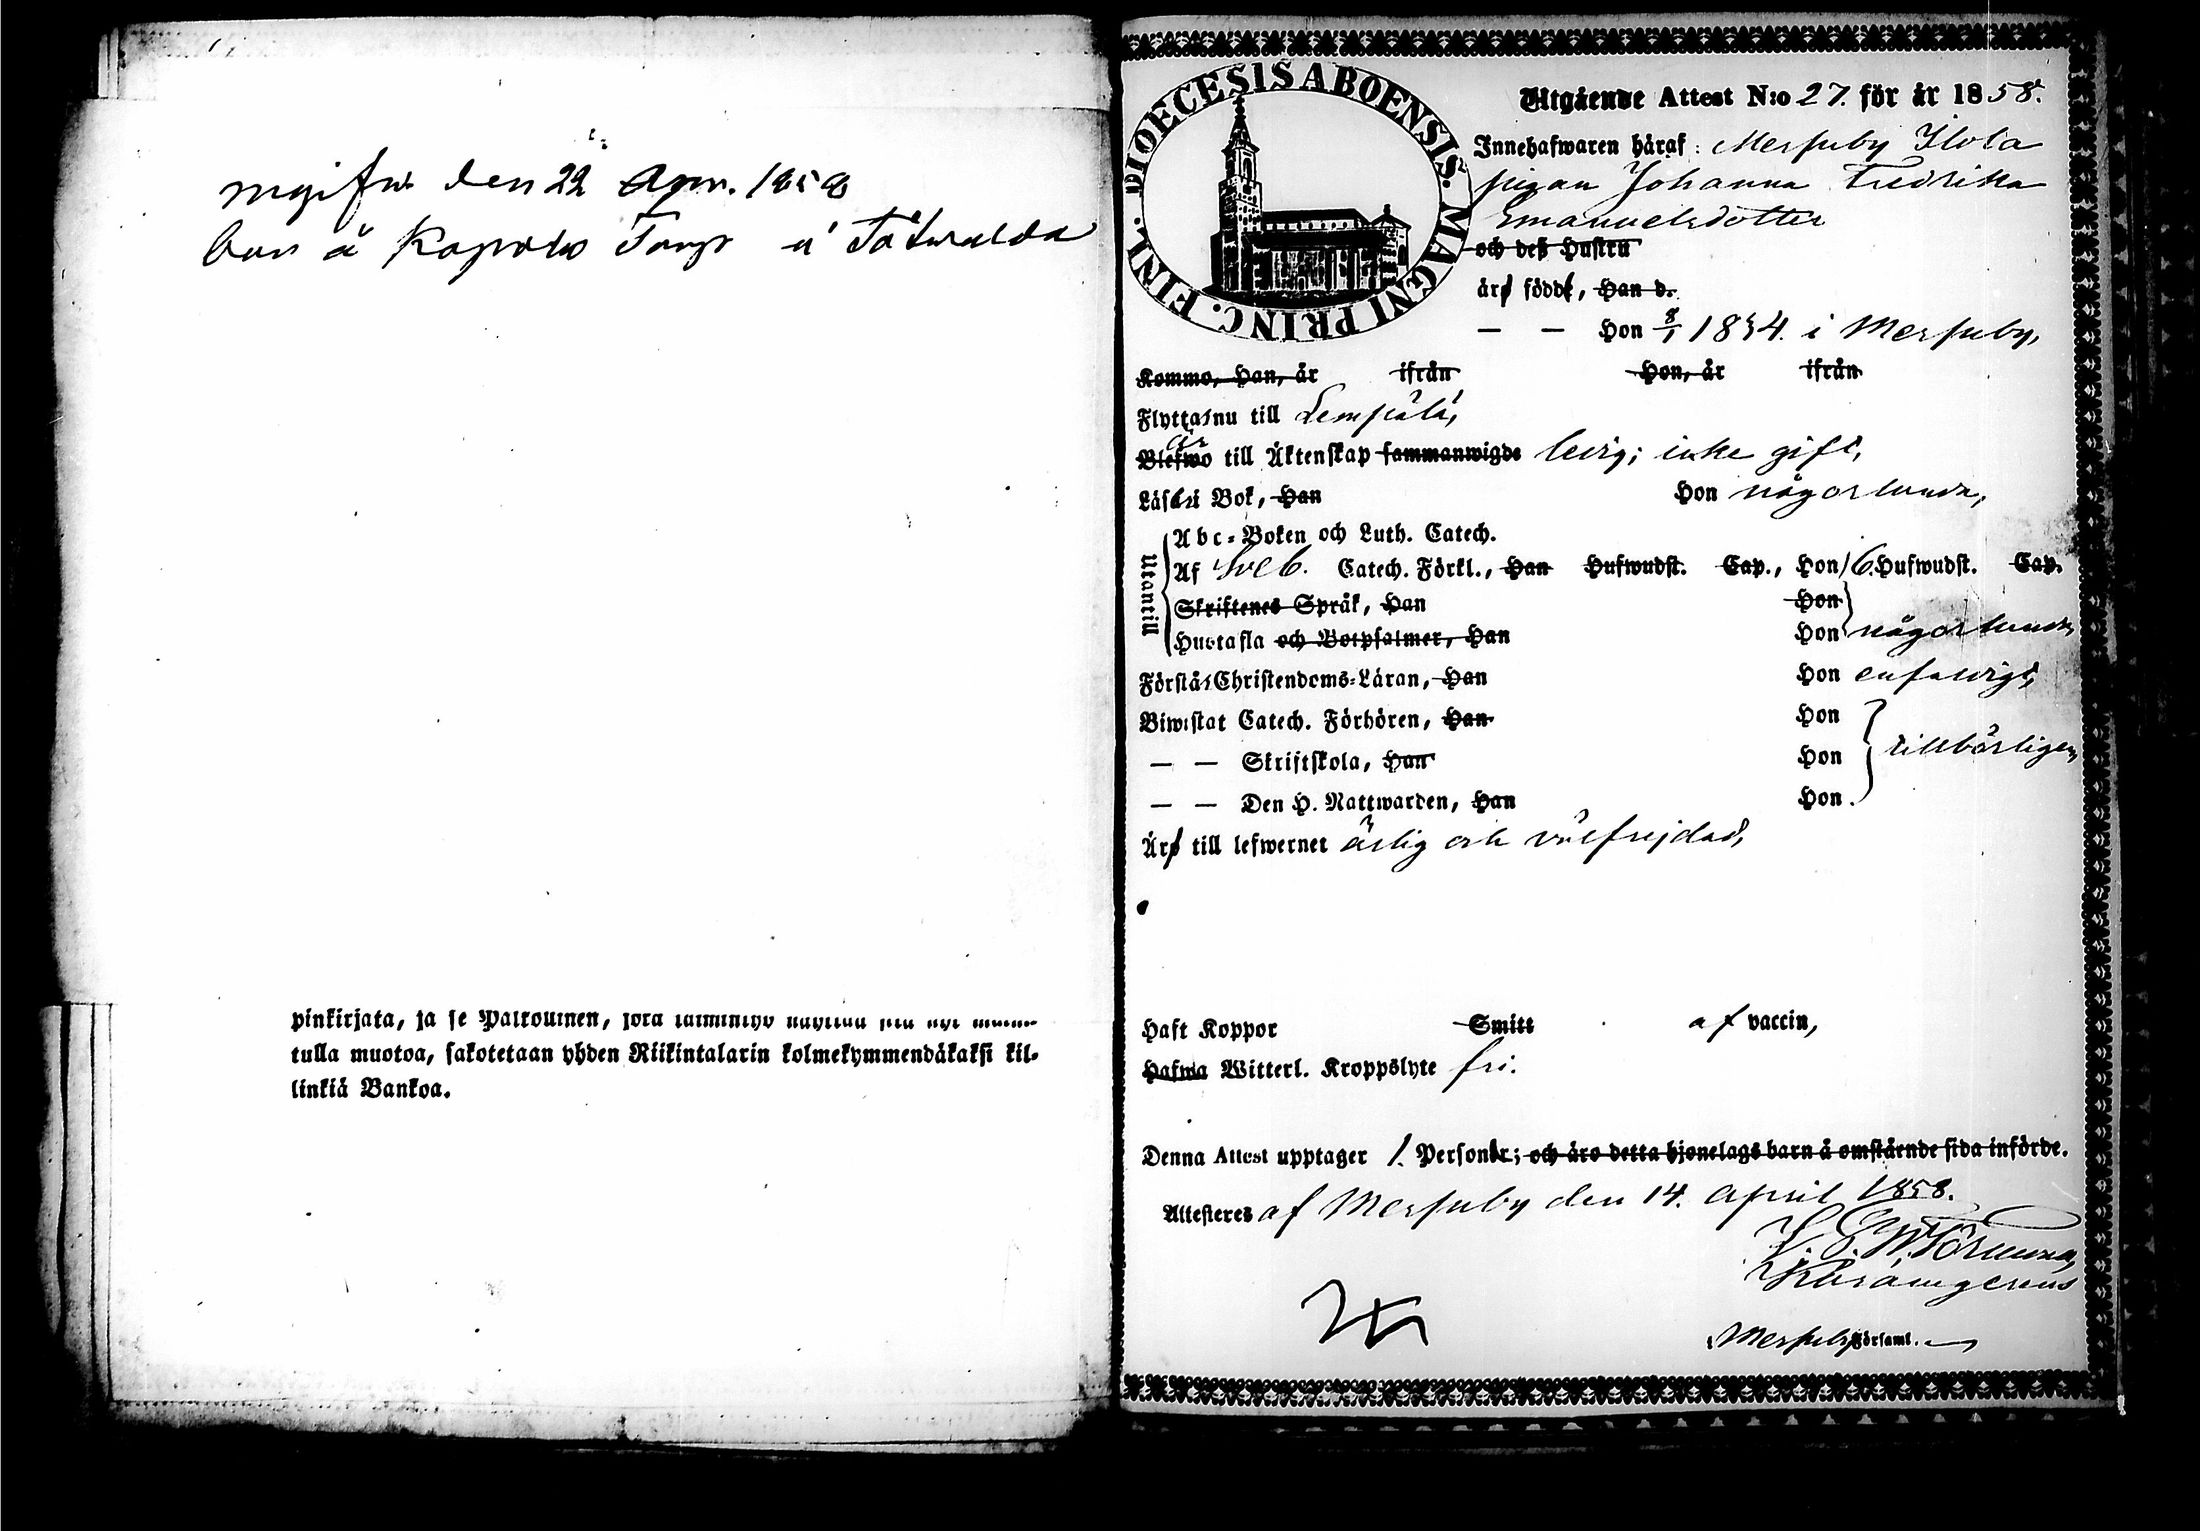 ingifw. den 22 Apr. 1858
bor å Kapola Torp i Tötwalda
pinkirjata, ja se Palkouinen, jota
tulla muotoa, sakotetaan yhden Riikintalarin kolmekymmendäkaksi kil-
linkiä Bankoa.
DIOECESIS ABOENSIS. MAGNI PRINC. FINL.
Utgående Attest N:o 27. för år 1858.
Innehafwaren häraf: Merjuby Ilola
pigan Johanna Fredrika
Emanuelsdotter
och deß Hustru
är född, Han d.
— — Hon 8/1 1834. i Merjuby,
Kommo, Han, år ifrån Hon, år ifrån
Flyttar nu till Lempälä,
är
Blefwo till Äktenskap sammanwigde ledig; icke gift,
Läser i Bok, Han Hon någorlunda,
Utantill
Abc-Boken och Luth. Catech.
Af Sveb. Catech. Förkl., Han Hufwudst. Cap., Hon 6. Hufwudst. Cap.
Skriftenes Språk, Han Hon
Hustafla och Botpsalmer, Han Hon någorlunda
Förstår Christendoms-Läran, Han Hon enfaldigt,
Biwistat Catech. Förhören, Han Hon
— — Skriftskola, Han Hon tillbörligen,
— — Den H. Nattwarden, Han Hon
Är till lefwernet ärlig och välfrejdad,
Haft Koppor Smitt af vaccin,
Hafwa Witterl. Kroppslyte fri.
Denna Attest upptager 1. Person; och äro detta hjonelags barn å omstående sida införde.
Attesteras af Merjuby den 14. April 1858.
Merjuby Församl.